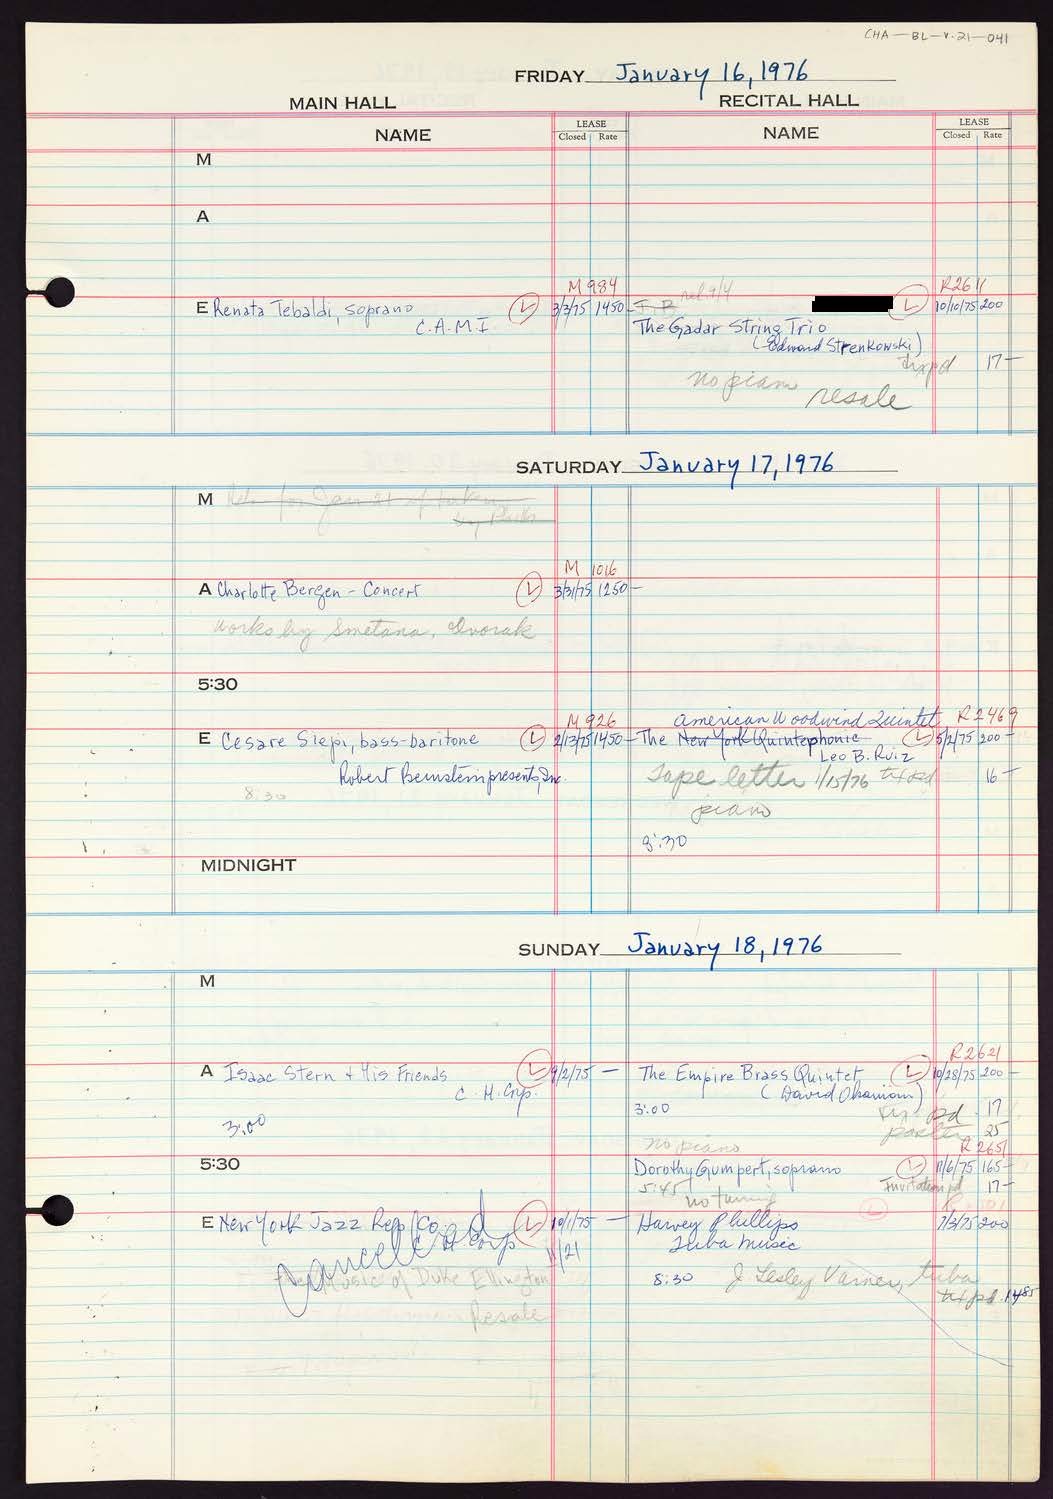 CHA-BL-V.21-041
FRIDAY January 16, 1976
MAIN HALL RECITAL HALL
NAME LEASE Closed Rate NAME LEASE Closed Rate
M
A
M 984 R2611
E Renata Tebaldi, soprano L 3/3/75 1450- I B rel. 9/4 L 10/10/75 200
C.A.M.I The Gadar String Trio
(Edward Strenkowski)
tix pd 17-
no piano resale
SATURDAY January 17, 1976
M Rel. for Jan 21 if taken
by
M 1016
A Charlotte Bergen - Concert L 3/31/75 1250-
works by Smetana, Dvorak
5:30
M 926 American Woodwind Quintet R2469
E Cesare Siepi, bass-baritone L 2/13/75 1450- The New York Quintephonic L 5/2/75 200-
Leo B. Ruiz
Robert Bernstein presents, Inc. Tape letter 1/15/76 tix pd 16-
8:30 piano
8:30
MIDNIGHT
SUNDAY January 18, 1976
M
R2621
A Isaac Stern + His Friends L 9/2/75 - The Empire Brass Quintet L 10/28/75 200-
C.H. Crp. (David Ohanian)
3:00 3:00 tix pd 17
poster 25
no piano R2651
5:30 Dorothy Gumpert, soprano L 11/6/75 165-
5:45 no tuning Invitation pd 17-
E New York Jazz Rep Co. L 10/1/75 - Harvey Phillips L 7/3/75 200
C H Corp 11/21 Tuba Music
Cancelled
The Music of Duke Ellington 8:30 J Lesley Varner, tuba
tix pd. 1485
Resale